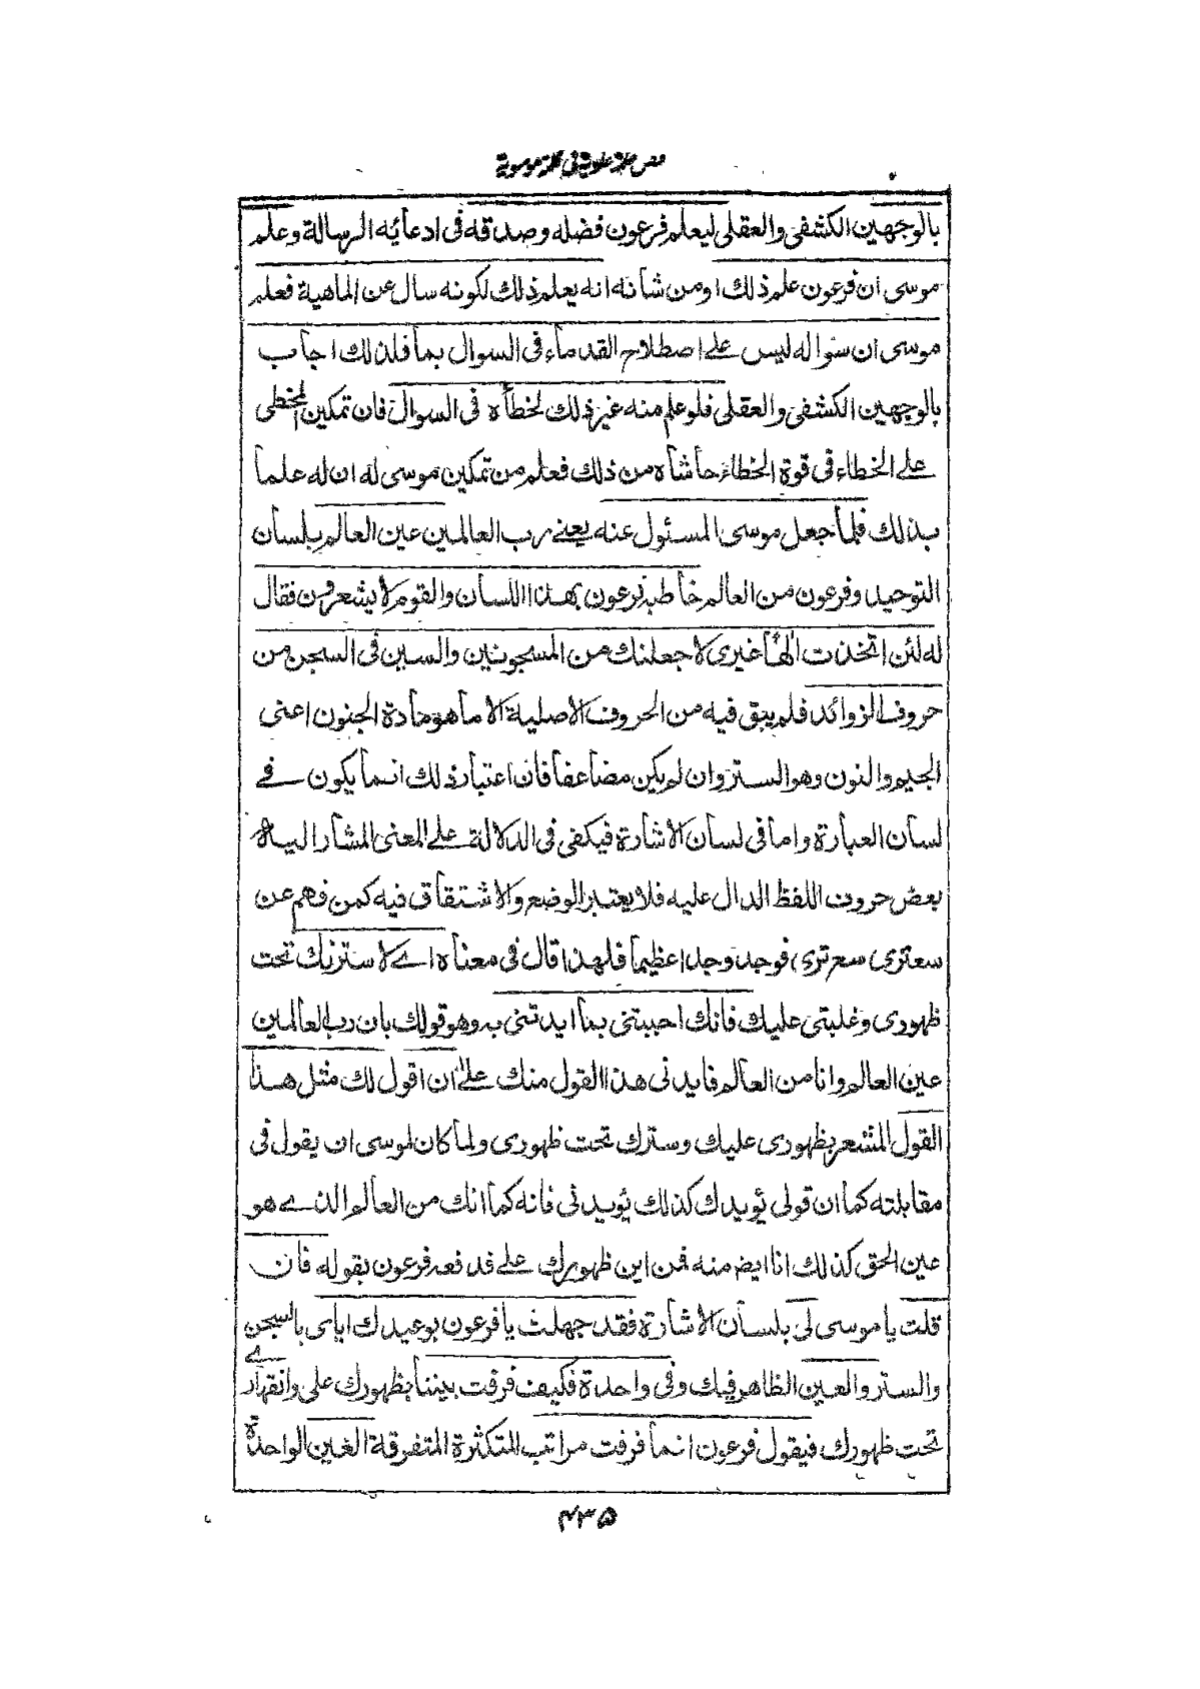 فص حكمة علوية فى كلمة موسوية
بالوجهين الكشفى والعقلى ليعلم فرعون فضله وصدقه فى ادعائه الرسالة وعلم
موسى ان فرعون علم ذلك او من شأنه انه يعلم ذلك لكونه سال عن الماهية فعلم
موسى ان سواله ليس على اصطلاح القدماء فى السوال بما فلذلك اجاب
بالوجهين الكشفى والعقلى فلو علم منه غير ذلك لخطأه فى السوال فان تمكين المخطى
على الخطاء فى قوة الخطاء حاشاه من ذلك فعلم من تمكين موسى له ان له علما
بذلك فلما جعل موسى المسئول عنه يعنے رب العالمين عين العالم بلسان
التوحيد وفرعون من العالم خاطبه فرعون بهذا اللسان والقوم لا يشعرون فقال
له لئن اتخذت الٰهًا غيرى لاجعلنك من المسجونين والسين فى السجن من
حروف الزوائد فلم يبق فيه من الحروف الاصلية الا ما هو مادة الجنون اعنى
الجيم والنون وهو الستر وان لم يكن مضاعفا فان اعتبار ذلك انما يكون فے
لسان العبارة واما فى لسان الاشارة فيكفى فى الدلالة على المعنى المشار اليه
بعض حروف اللفظ الدال عليه فلا يعتبر الوضع والاشتقاق فيه كمن فهم عن
سعترى سعر ترى فوجد وجدا عظيما فلهذا قال فى معناه اے لاسترنك تحت
ظهورى وغلبتى عليك فانك اجبتنى بما ايدتنى به وهو قولك بان رب العالمين
عين العالم وانا من العالم فايدنى هذا القول منك علىٰ ان اقول لك مثل هذا
القول المشعر بظهورى عليك وسترك تحت ظهورى ولما كان لموسى ان يقول فى
مقابلته كما ان قولى يؤيدك كذلك يؤيدنى فانه كما انك من العالم الذے هو
عين الحق كذلك انا ايض منه فمن اين ظهورك على فدفعه فرعون بقوله فان
قلت يا موسى لى بلسان الاشارة فقد جهلت يا فرعون بوعيدك اياى بالسجن
والستر والعين الظاهر فيك وفى واحدة فكيف فرقت بيننا بظهورك على وانقهارے
تحت ظهورك فيقول فرعون انما فرقت مراتب المتكثرة المتفرقة العين الواحدة
۴۳۵